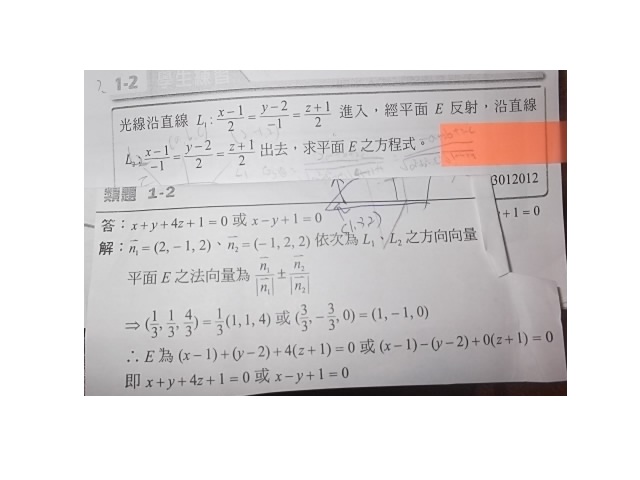 1-2 學生練習
光線沿直線 L₁: \frac{x-1}{2} = \frac{y-2}{-1} = \frac{z+1}{2} 進入，經平面 E 反射，沿直線
L₂: \frac{x-1}{-1} = \frac{y-2}{2} = \frac{z+1}{2} 出去，求平面 E 之方程式。
3012012
類題 1-2
答：x+y+4z+1=0 或 x-y+1=0
y+1=0
(1,3,2)
解：\vec{n_1}=(2,-1,2)、\vec{n_2}=(-1,2,2) 依次為 L₁、L₂ 之方向向量
平面 E 之法向量為 \frac{\vec{n_1}}{|\vec{n_1}|} ± \frac{\vec{n_2}}{|\vec{n_2}|}
⇒ (\frac{1}{3}, \frac{1}{3}, \frac{4}{3}) = \frac{1}{3}(1,1,4) 或 (\frac{3}{3}, -\frac{3}{3}, 0) = (1,-1,0)
∴ E 為 (x-1)+(y-2)+4(z+1)=0 或 (x-1)-(y-2)+0(z+1)=0
即 x+y+4z+1=0 或 x-y+1=0